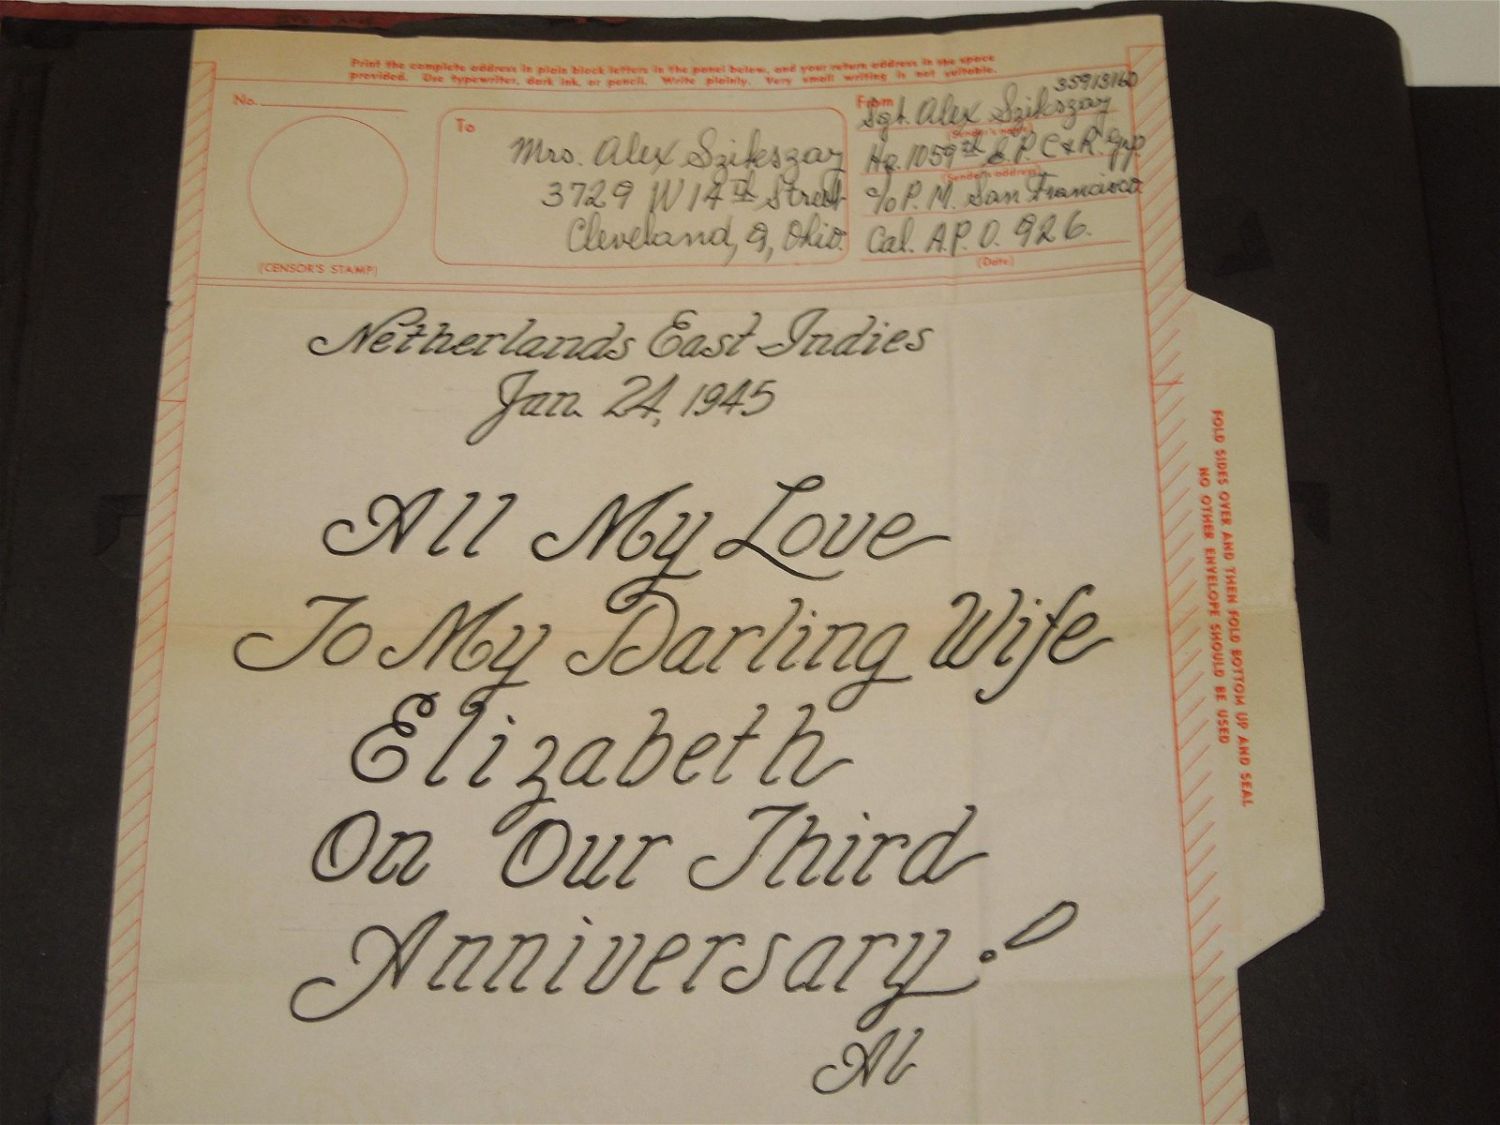 Print the complete address in plain block letters in the panel below, and your return address in the space
provided. Use typewriter, dark ink, or pencil. Write plainly. Very small writing is not suitable.
No.
(CENSOR'S STAMP)
To
Mrs. Alex Szikszay
3729 W 14th Street
Cleveland, 9, Ohio.
From
35913160
Sgt. Alex Szikszay
(Sender's name)
Hq. 1059th B.P. C & R. Grp.
(Sender's address)
c/o P. M. San Francisco
Cal. A.P.O. 926.
(Date)
Netherlands East Indies
Jan. 24, 1945
All My Love
To My Darling Wife
Elizabeth
On Our Third
Anniversary!
Al
FOLD SIDES OVER AND THEN FOLD BOTTOM UP AND SEAL
NO OTHER ENVELOPE SHOULD BE USED